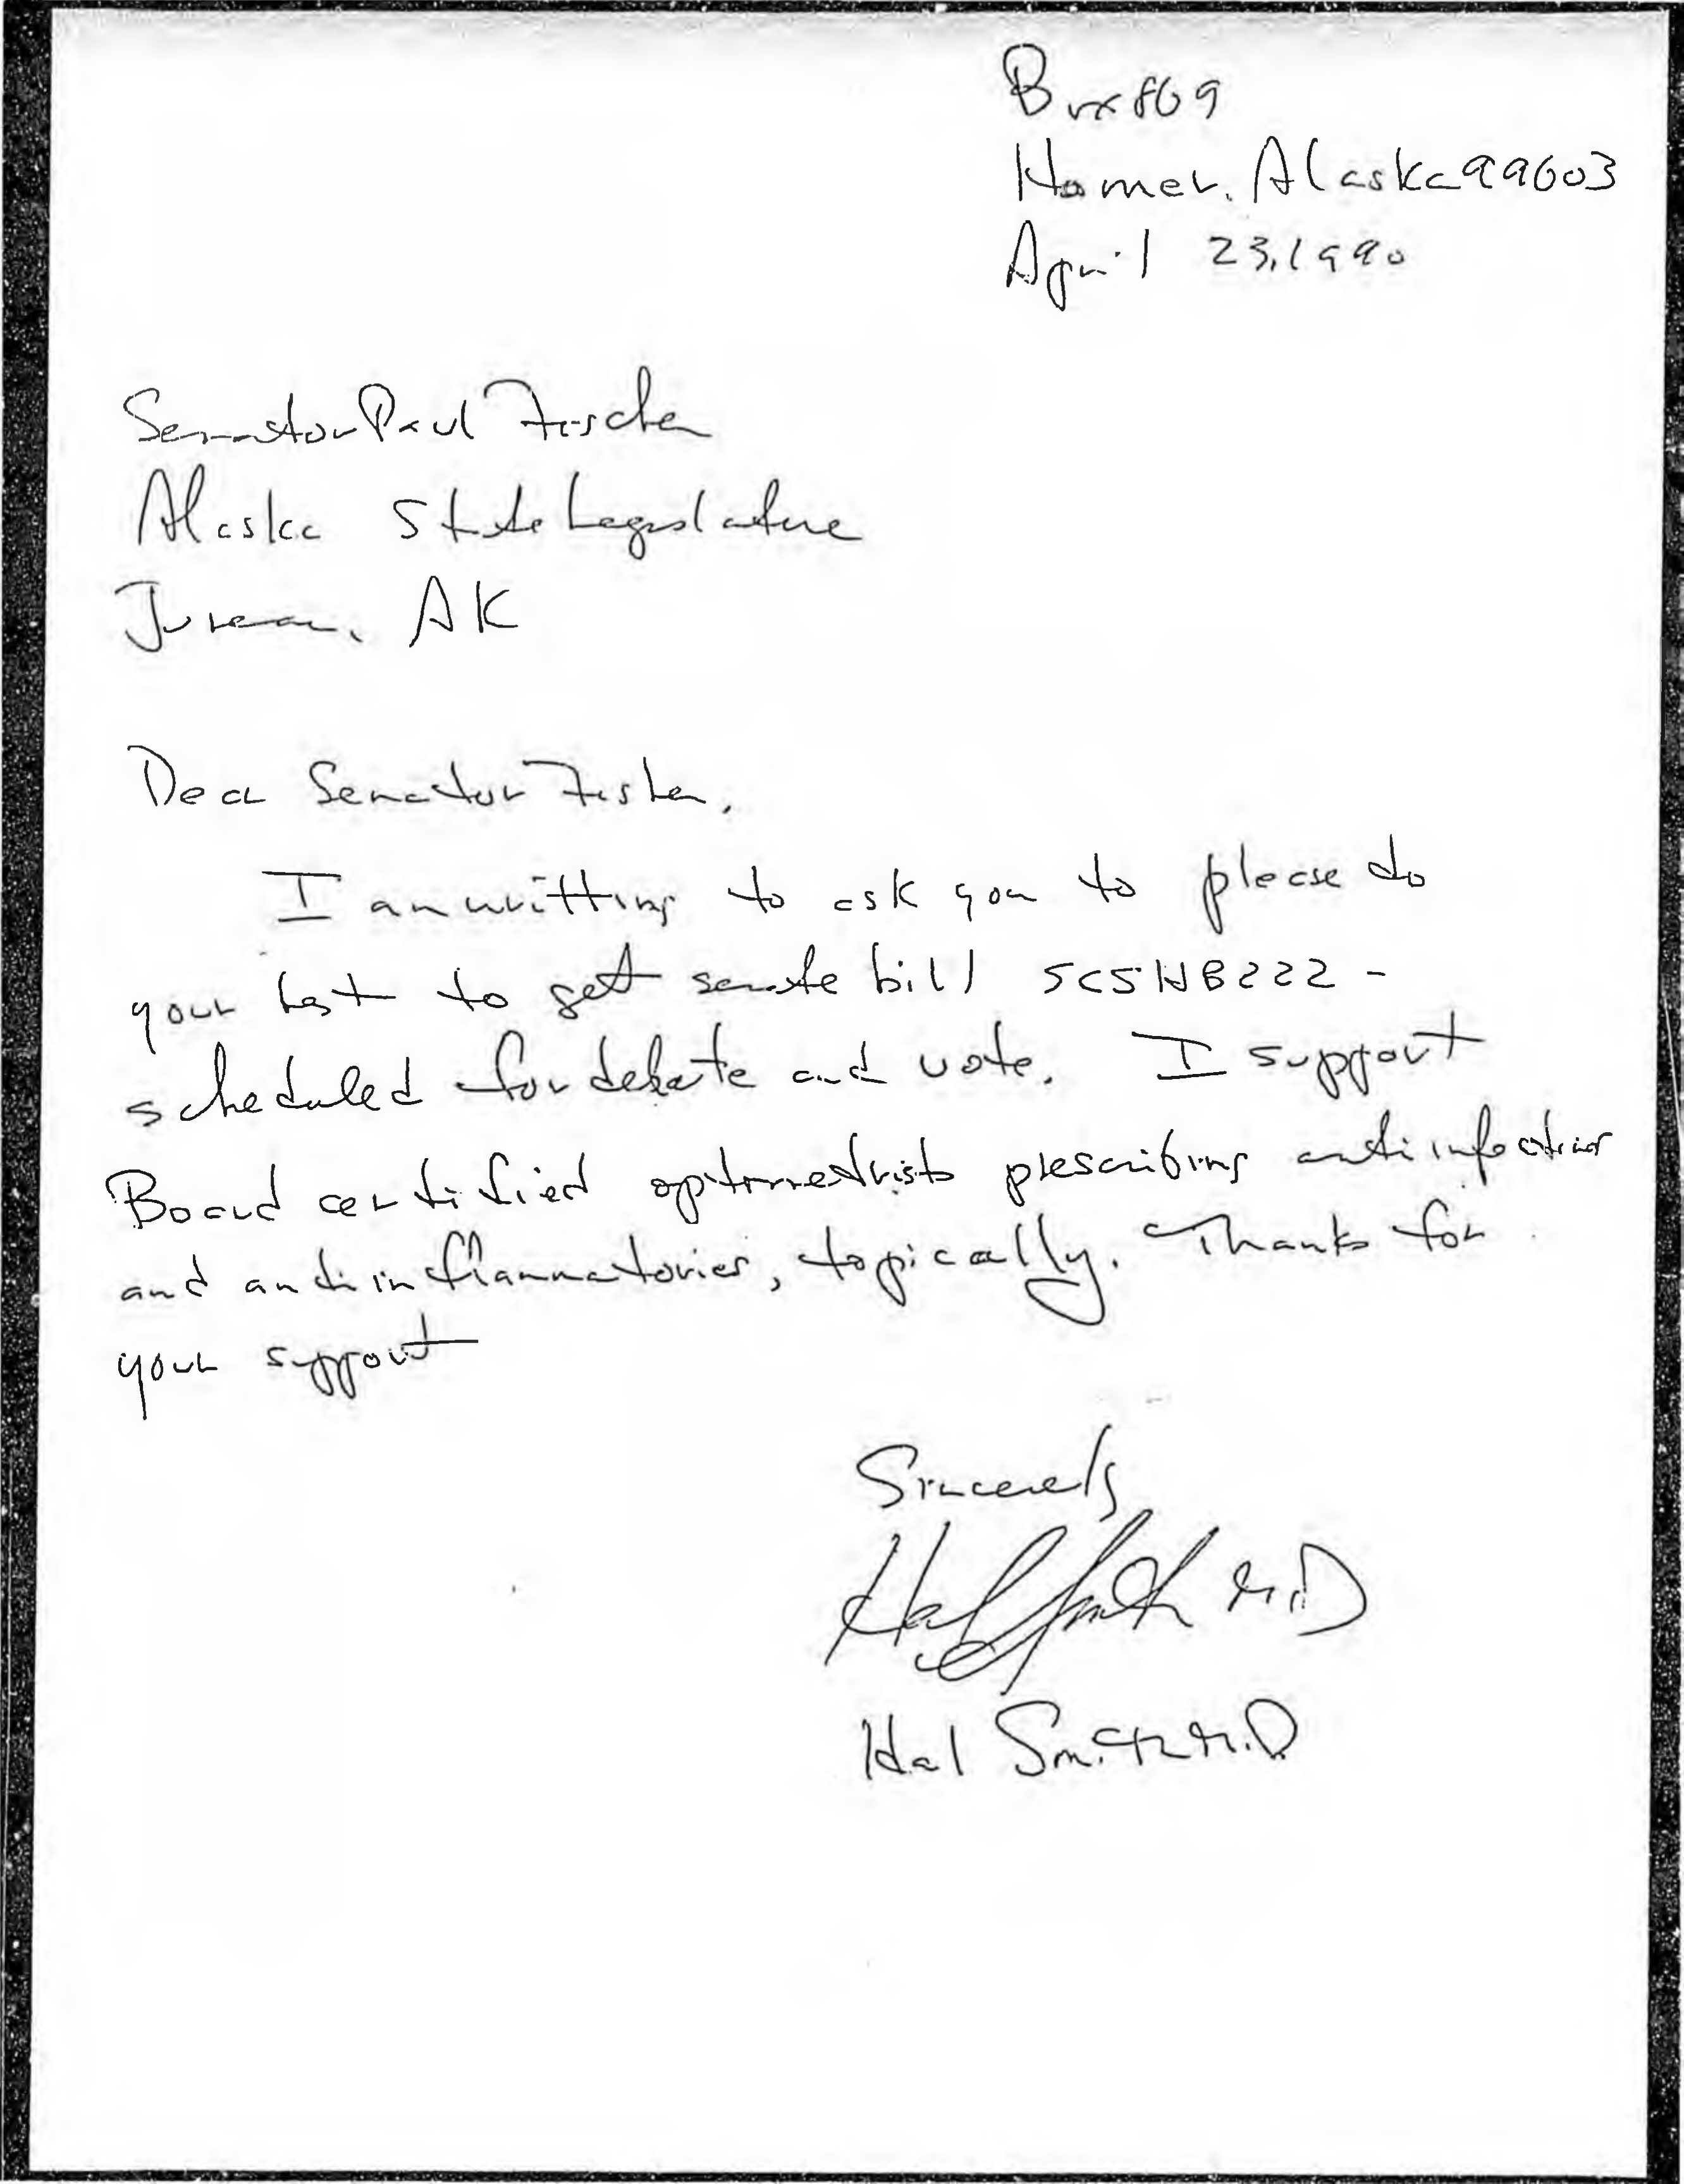 Box 869
Homer, Alaska 99603
April 23, 1990
Senator Paul Fischer
Alaska State Legislature
Juneau, AK
Dear Senator Fisher,
I am writting to ask you to please do
your best to get senate bill SCSHB222 -
scheduled for debate and vote. I support
Board certified optometrists prescribing anti infectives
and anti inflammatories, topically. Thanks for
your support
Sincerely
Hal Smith M.D
Hal Smith M.D.